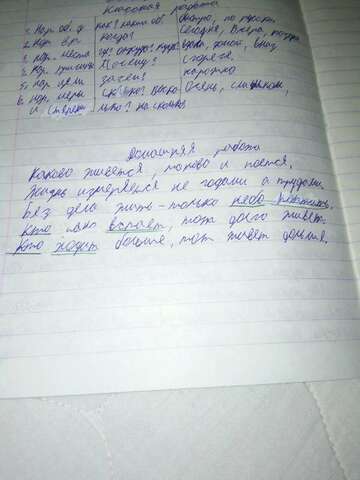 Классная работа
1. Нар. об. д. как? каким об быстро, по русски,
2. Нар. вр. когда? сегодня, вчера, позд
3. нар. места где? откуда? куда? дома, домой, вниз
4. нар. причины Почему? сгоряча
5. нар. цели зачем? нарочно
6. нар. меры сколько? Очень, слишком,
и степен
Домашняя работа
Каково живется, таково и поется.
Жизнь измеряется не годами а трудами.
Без дела жить-только небо коптить.
Кто рано встает, тот долго живет.
Кто ходит больше, тот живет дольше.